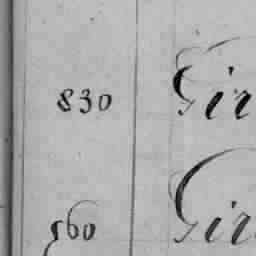 830 Gir
560 Gir